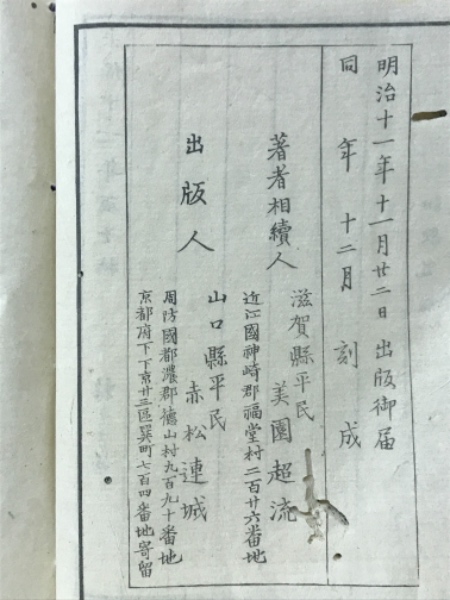 明治十一年十一月廿二日出版御届
同年十二月刻成
著者相續人
滋賀縣平民
美園超流
近江國神崎郡福堂村二百廿六番地
出版人
山口縣平民
赤松連城
周防國都濃郡德山村九百九十番地
京都府下下京廿三區巽町七百四番地寄留